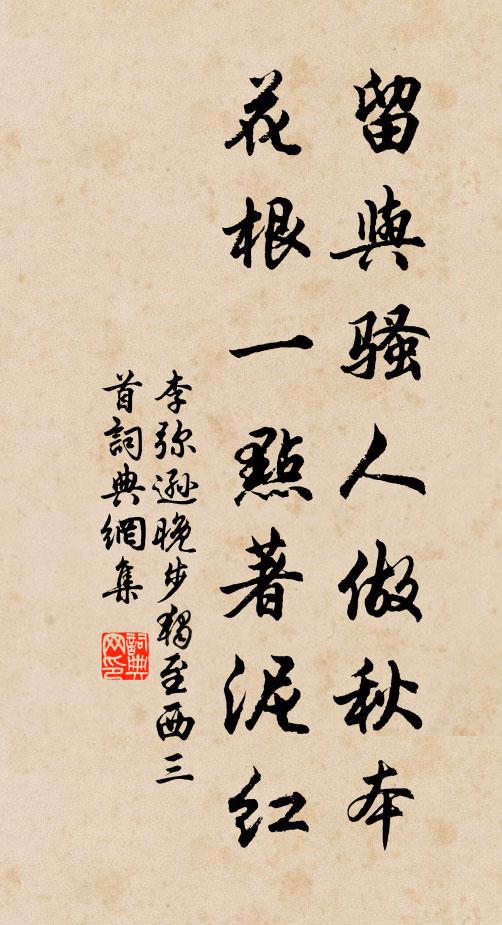 留與騷人做秋本
花根一點著泥紅
李弥遜晚步獨至西三
首詞典網集
詞典
网印